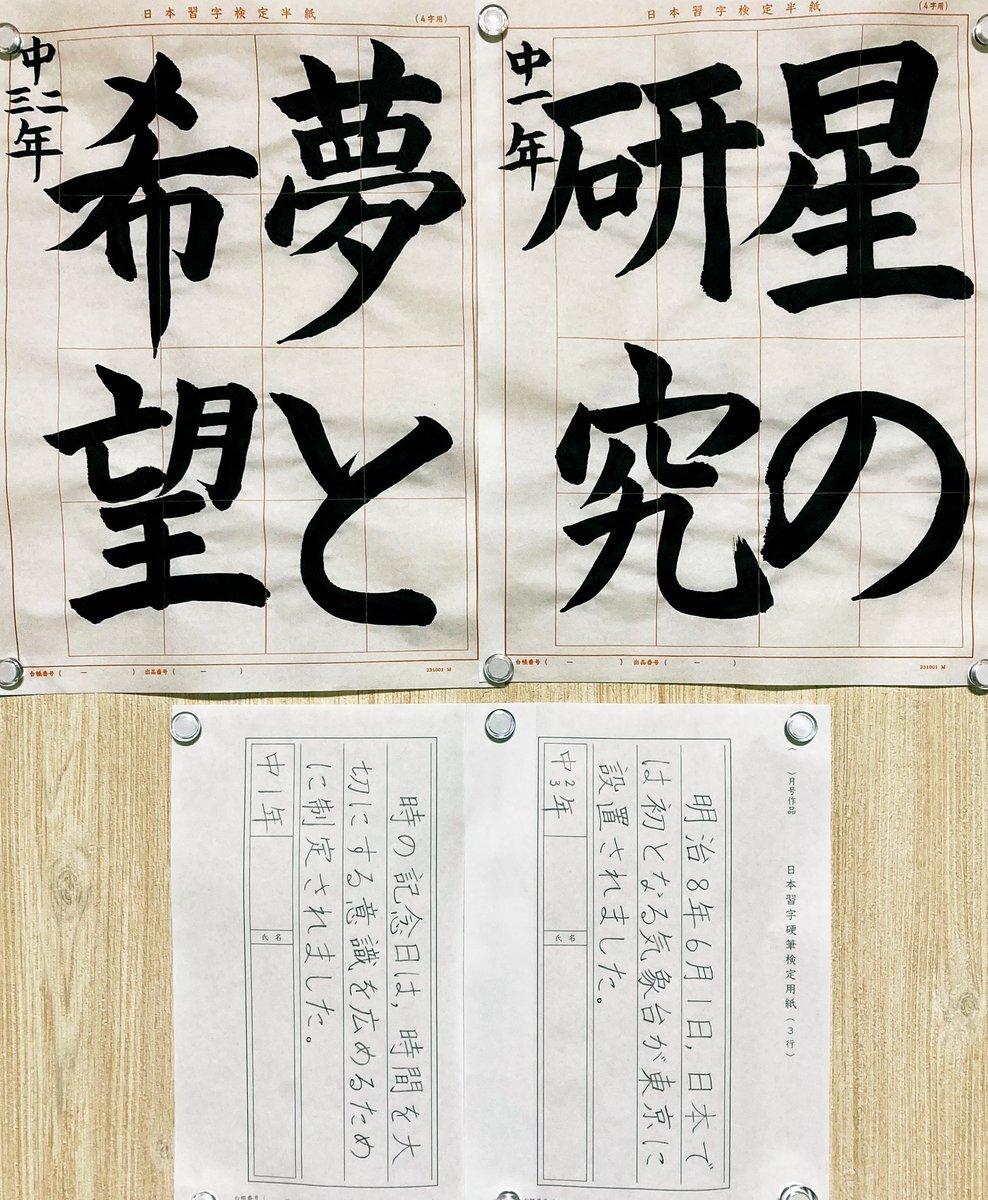 日本習字検定半紙
(4字用)
星の
研究
中一年
台帳番号( ー ) 出品番号( ー )
231001 M
日本習字検定半紙
(4字用)
夢と
希望
中二三年
台帳番号( ー ) 出品番号( ー )
231001 M
( )月号作品 日本習字硬筆検定用紙(3行)
明治8年6月1日,日本で
は初となる気象台が東京に
設置されました。
中2 3年
氏名
時の記念日は,時間を大
切にする意識を広めるため
に制定されました。
中1年
氏名